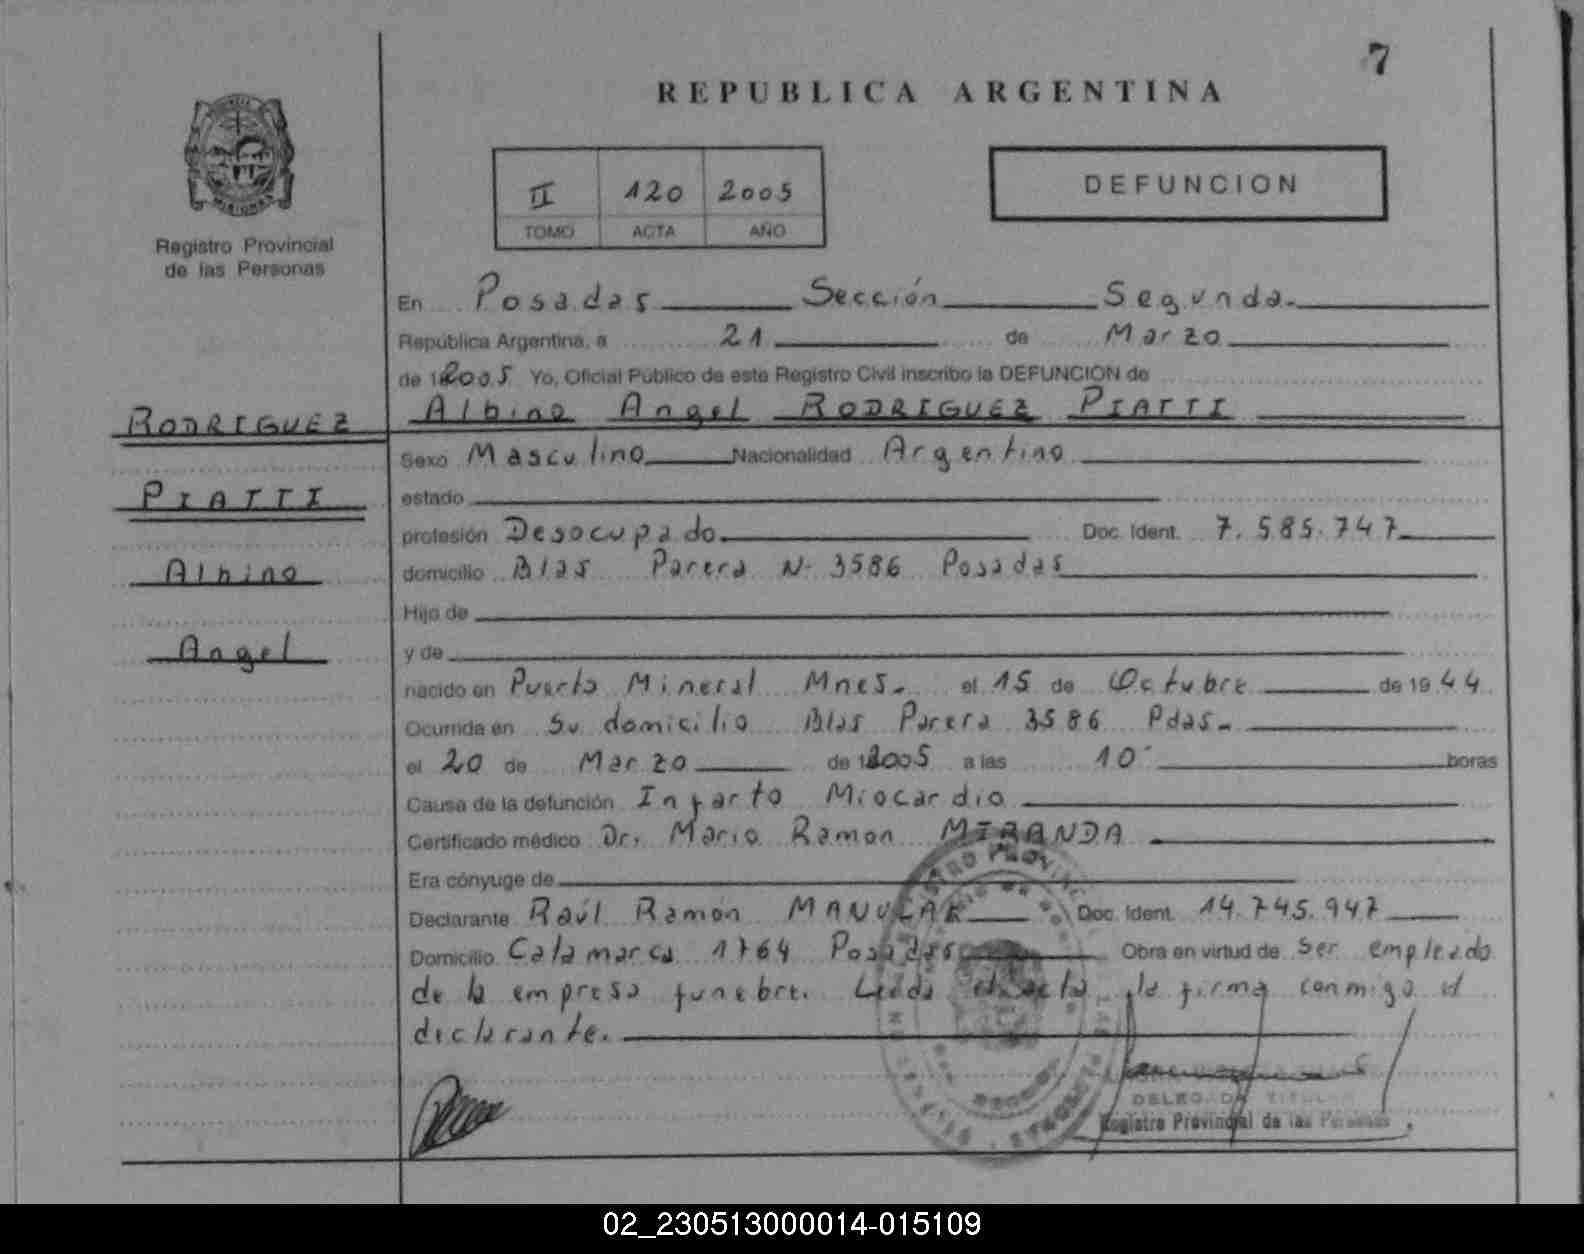 7
REPUBLICA ARGENTINA
MISIONES
Registro Provincial
de las Personas
II 120 2005
TOMO ACTA AÑO
DEFUNCION
En Posadas Sección Segunda.
República Argentina, a 21 de Marzo
de 2005 Yo, Oficial Público de este Registro Civil inscribo la DEFUNCION de
Albino Angel RODRIGUEZ PIATTI
RODRIGUEZ
PIATTI
Albino
Angel
Sexo Masculino Nacionalidad Argentino
estado
profesión Desocupado. Doc. Ident. 7.585.747
domicilio Blas Parera N- 3586 Posadas
Hijo de
y de
nacido en Puerto Mineral Mnes. el 15 de Octubre de 1944
Ocurrida en Su domicilio Blas Parera 3586 Pdas.
el 20 de Marzo de 2005 a las 10 horas
Causa de la defunción Infarto Miocardio
Certificado médico Dr. Mario Ramon MIRANDA
Era cónyuge de
Declarante Raúl Ramón MANULAK Doc. Ident. 14.745.947
Domicilio Catamarca 1764 Posadas Obra en virtud de Ser empleado
de la empresa funebre. Leida el acta la firma conmigo el
declarante.
DELEGADA TITULAR
Registro Provincial de las Personas
02_230513000014-015109